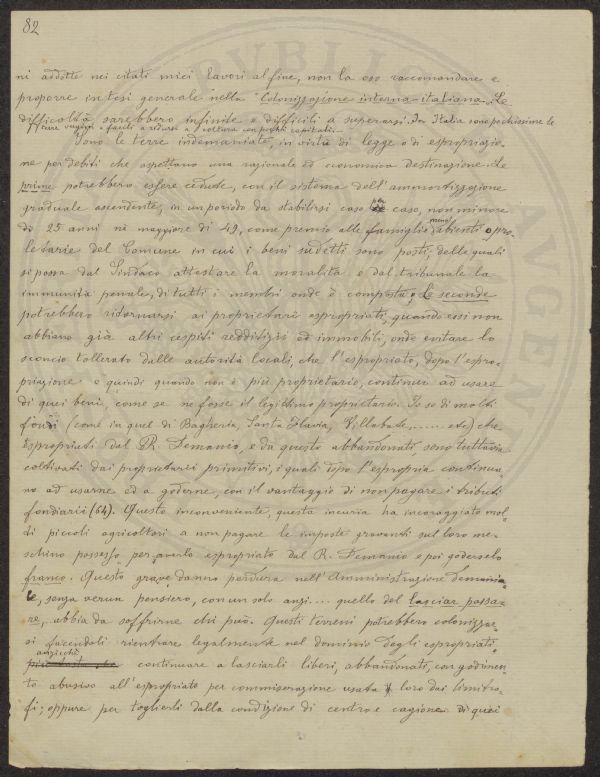 82
ni addotte nei citati miei lavori alfine, non la oso raccomandare e
proporre in tesi generale nella "Colonizzazione interna italiana. Le
difficoltà sarebbero infinite e difficili a superarsi. In Italia sono pochissime le
terre vergini e facili a ridursi a coltura con pochi capitali.
Sono le terre indemaniate, in virtù di legge o di espropriazio-
ne per debiti che aspettano una razionale ed economica destinazione. Le
prime potrebbero essere cedute, con il sistema dell'ammortizzazione
graduale ascendente, in un periodo da stabilirsi caso per caso, non minore
di 25 anni nè maggiore di 49, come premio alle famiglie meno abbienti o pro-
letarie del Comune in cui i beni sudetti sono posti, delle quali
si possa dal Sindaco attestare la moralità e dal tribunale la
immunità penale, di tutti i membri onde è composta. Le seconde
potrebbero ridonarsi ai proprietarii espropriati, quando essi non
abbiano già altri cespiti redditizii ed immobili, onde evitare lo
sconcio tollerato dalle autorità locali, che l'espropriato, dopo l'espro-
priazione e quindi quando non è più proprietario, continui ad usare
di quei beni, come se ne fosse il legittimo proprietario. Io so di molti
fondi (come in quel di Bagheria, Santa Flavia, Villabate,..... etc) che
espropriati dal R. Demanio, e da questo abbandonati, sono tuttavia
coltivati dai proprietarii primitivi, i quali dopo l'espropria continua-
no ad usarne ed a goderne, con il vantaggio di non pagare i tributi
fondiarii (64). Questo inconveniente, questa incuria ha incoraggiato mol-
ti piccoli agricoltori a non pagare le imposte gravanti sul loro me-
schino possesso per averlo espropriato dal R. Demanio e poi goderselo
franco. Questo grave danno perdura nell'Amministrazione demania-
le, senza verun pensiero, con un solo anzi.... quello del lasciar passa-
re, abbia da soffrirne chi può. Questi terreni potrebbero colonizzar-
si facendoli rientrare legalmente nel dominio degli espropriati
anzicchè
continuare a lasciarli liberi, abbandonati, con godimen-
to abusivo all'espropriato per commiserazione usata loro dai limitro-
fi; oppure per toglierli dalla condizione di centro e cagione di quei